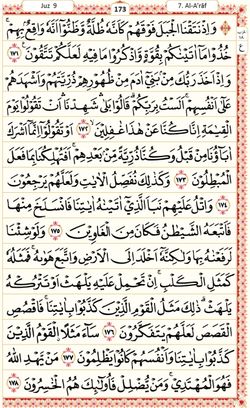 Juz 9
173
7. Al-A'râf
وَاِذْ نَتَقْنَا الْجَبَلَ فَوْقَهُمْ كَاَنَّهٗ ظُلَّةٌ وَّظَنُّوْٓا اَنَّهٗ وَاقِعٌۢ بِهِمْۚ
خُذُوْا مَآ اٰتَيْنٰكُمْ بِقُوَّةٍ وَّاذْكُرُوْا مَا فِيْهِ لَعَلَّكُمْ تَتَّقُوْنَ ١٧١
وَاِذْ اَخَذَ رَبُّكَ مِنْۢ بَنِيْٓ اٰدَمَ مِنْ ظُهُوْرِهِمْ ذُرِّيَّتَهُمْ وَاَشْهَدَهُمْ
عَلٰٓى اَنْفُسِهِمْ اَلَسْتُ بِرَبِّكُمْۗ قَالُوْا بَلٰىۛ شَهِدْنَاۛ اَنْ تَقُوْلُوْا يَوْمَ
الْقِيٰمَةِ اِنَّا كُنَّا عَنْ هٰذَا غٰفِلِيْنَ ١٧٢ اَوْ تَقُوْلُوْٓا اِنَّمَآ اَشْرَكَ
اٰبَاۤؤُنَا مِنْ قَبْلُ وَكُنَّا ذُرِّيَّةً مِّنْۢ بَعْدِهِمْۚ اَفَتُهْلِكُنَا بِمَا فَعَلَ
الْمُبْطِلُوْنَ ١٧٣ وَكَذٰلِكَ نُفَصِّلُ الْاٰيٰتِ وَلَعَلَّهُمْ يَرْجِعُوْنَ
١٧٤ وَاتْلُ عَلَيْهِمْ نَبَاَ الَّذِيْٓ اٰتَيْنٰهُ اٰيٰتِنَا فَانْسَلَخَ مِنْهَا
فَاَتْبَعَهُ الشَّيْطٰنُ فَكَانَ مِنَ الْغٰوِيْنَ ١٧٥ وَلَوْ شِئْنَا
لَرَفَعْنٰهُ بِهَا وَلٰكِنَّهٗٓ اَخْلَدَ اِلَى الْاَرْضِ وَاتَّبَعَ هَوٰىهُۚ فَمَثَلُهٗ
كَمَثَلِ الْكَلْبِۚ اِنْ تَحْمِلْ عَلَيْهِ يَلْهَثْ اَوْ تَتْرُكْهُ
يَلْهَثْۗ ذٰلِكَ مَثَلُ الْقَوْمِ الَّذِيْنَ كَذَّبُوْا بِاٰيٰتِنَاۚ فَاقْصُصِ
الْقَصَصَ لَعَلَّهُمْ يَتَفَكَّرُوْنَ ١٧٦ سَاۤءَ مَثَلًا ۨالْقَوْمُ الَّذِيْنَ
كَذَّبُوْا بِاٰيٰتِنَا وَاَنْفُسَهُمْ كَانُوْا يَظْلِمُوْنَ ١٧٧ مَنْ يَّهْدِ اللّٰهُ
فَهُوَ الْمُهْتَدِيْۚ وَمَنْ يُّضْلِلْ فَاُولٰۤىِٕكَ هُمُ الْخٰسِرُوْنَ ١٧٨